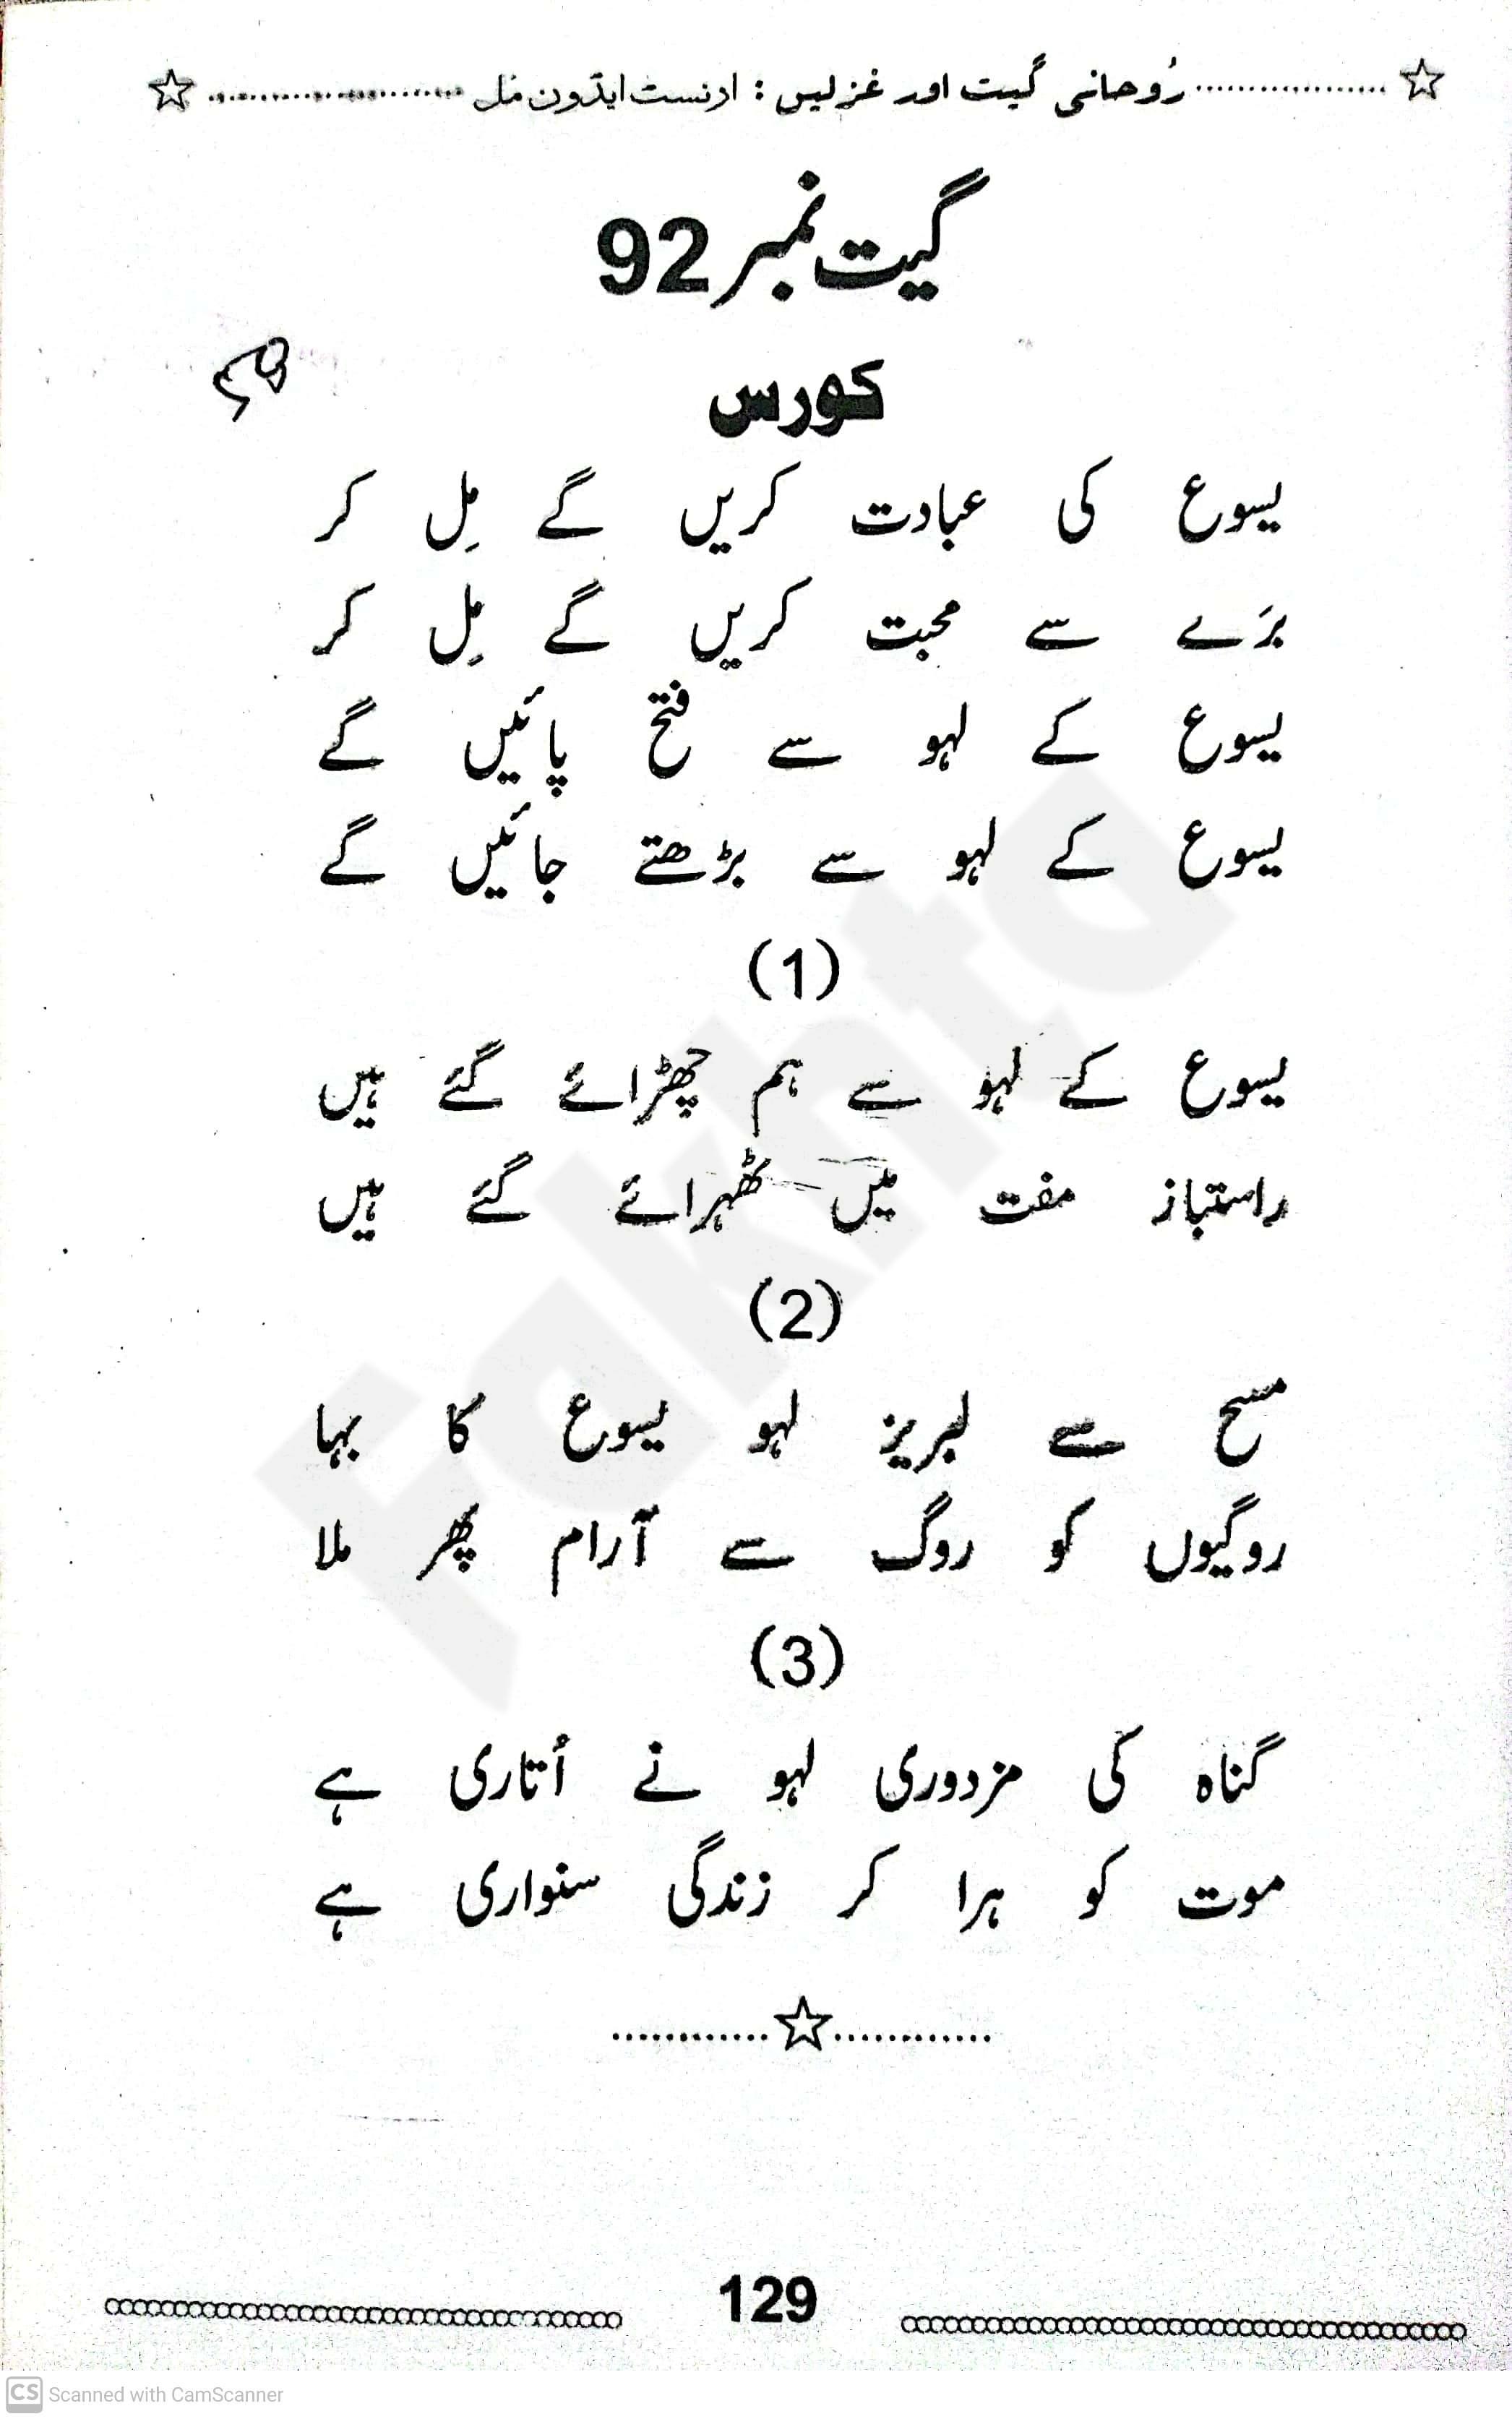 ☆..................رُوحانی گیت اور غزلیں : ارنست ایڈون مَل........................☆
گیت نمبر 92
کورس
یسوع کی عبادت کریں گے مِل کر
برَے سے محبت کریں گے مِل کر
یسوع کے لہو سے فتح پائیں گے
یسوع کے لہو سے بڑھتے جائیں گے
(1)
یسوع کے لہو سے ہم چھڑائے گئے ہیں
راستباز مفت میں ٹھہرائے گئے ہیں
(2)
مسح سے لبریز لہو یسوع کا بہا
روگیوں کو روگ سے آرام پھر ملا
(3)
گناہ کی مزدوری لہو نے اُتاری ہے
موت کو ہرا کر زندگی سنواری ہے
............☆............
129
CS Scanned with CamScanner
Fakhta